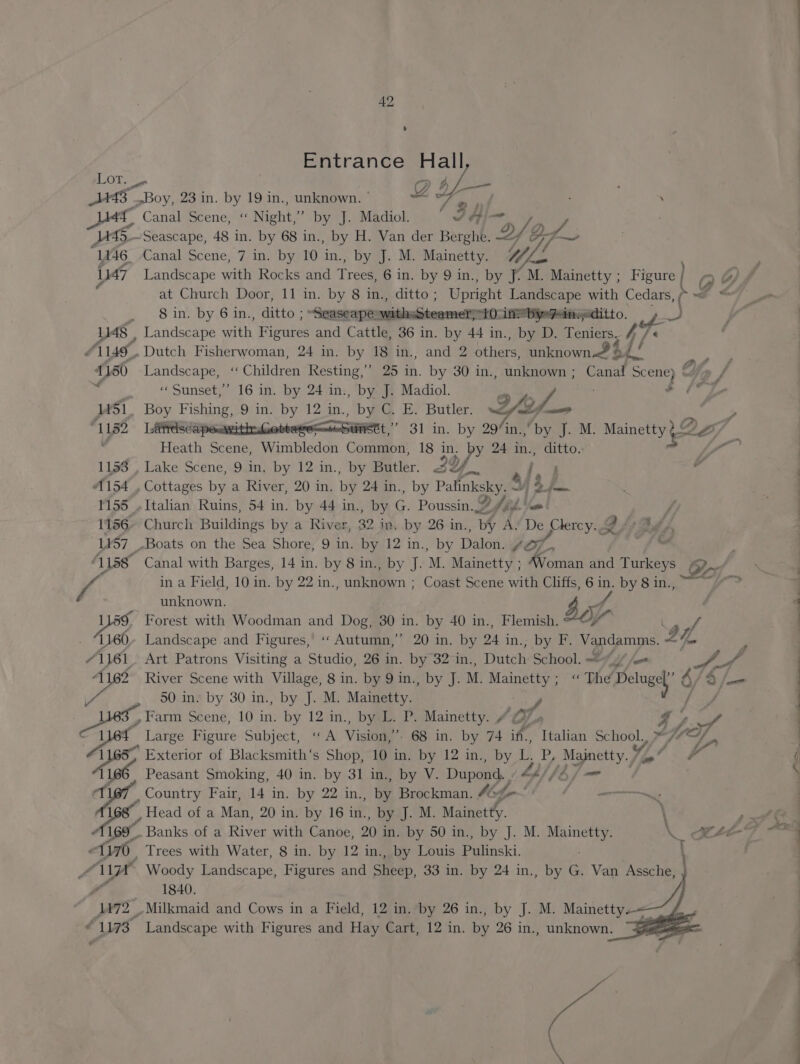 42
Entrance Hall,
Lot.
1143 Boy, 23 in. by 19 in., unknown.
1144 Canal Scene, “Night,” by J. Madiol.
1145 Seascape, 48 in. by 68 in., by H. Van der Berghe.
1146 Canal Scene, 7 in. by 10 in., by J. M. Mainetty.
1147 Landscape with Rocks and Trees, 6 in. by 9 in., by J. M. Mainetty ; Figure
at Church Door, 11 in. by 8 in., ditto ; Upright Landscape with Cedars,
8 in. by 6 in., ditto ; Seascape with Steamer, 10 in. by 7 in., ditto.
1148 Landscape with Figures and Cattle, 36 in. by 44 in., by D. Teniers.
1149 Dutch Fisherwoman, 24 in. by 18 in., and 2 others, unknown.
1150 Landscape, “Children Resting,” 25 in. by 30 in., unknown ; Canal Scene,
“Sunset,” 16 in. by 24 in., by J. Madiol.
1151 Boy Fishing, 9 in. by 12 in., by C. E. Butler.
1152 Landscape with Cottage—Sunset,” 31 in. by 29 in., by J. M. Mainetty ;
Heath Scene, Wimbledon Common, 18 in. by 24 in., ditto.
1153 Lake Scene, 9 in. by 12 in., by Butler.
1154 Cottages by a River, 20 in. by 24 in., by Palinksky.
1155 Italian Ruins, 54 in. by 44 in., by G. Poussin.
1156 Church Buildings by a River, 32 in. by 26 in., by A. De Clercy.
1157 Boats on the Sea Shore, 9 in. by 12 in., by Dalon.
1158 Canal with Barges, 14 in. by 8 in., by J. M. Mainetty ; Woman and Turkeys
in a Field, 10 in. by 22 in., unknown ; Coast Scene with Cliffs, 6 in. by 8 in.,
unknown.
1159 Forest with Woodman and Dog, 30 in. by 40 in., Flemish.
1160 Landscape and Figures, “Autumn,” 20 in. by 24 in., by F. Vandamms.
1161 Art Patrons Visiting a Studio, 26 in. by 32 in., Dutch School.
1162 River Scene with Village, 8 in. by 9 in., by J. M. Mainetty ; “The Deluge,”
50 in. by 30 in., by J. M. Mainetty.
1163 Farm Scene, 10 in. by 12 in., by L. P. Mainetty.
1164 Large Figure Subject, “A Vision,” 68 in. by 74 in., Italian School.
1165 Exterior of Blacksmith's Shop, 10 in. by 12 in., by L. P. Mainetty.
1166 Peasant Smoking, 40 in. by 31 in., by V. Dupond.
1167 Country Fair, 14 in. by 22 in., by Brockman.
1168 Head of a Man, 20 in. by 16 in., by J. M. Mainetty.
1169 Banks of a River with Canoe, 20 in. by 50 in., by J. M. Mainetty.
1170 Trees with Water, 8 in. by 12 in., by Louis Pulinski.
1171 Woody Landscape, Figures and Sheep, 33 in. by 24 in., by G. Van Assche,
1840.
1172 Milkmaid and Cows in a Field, 12 in. by 26 in., by J. M. Mainetty.
1173 Landscape with Figures and Hay Cart, 12 in. by 26 in., unknown.